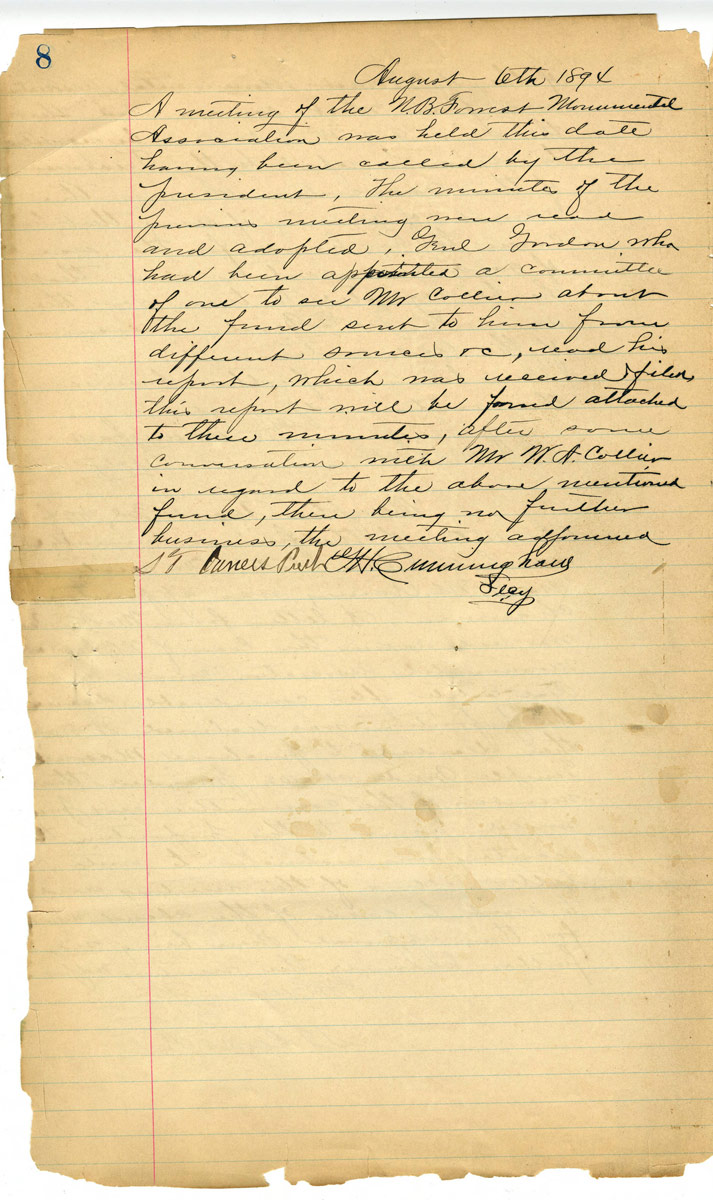 8
August 6th 1894
A meeting of the N.B. Forrest Monumental
Association was held this date
having been called by the
president, The minutes of the
previous meeting were read
and adopted, Genl Gordon who
had been appointed a committee
of one to see Mr Collier about
the fund sent to him from
different sources &c, read his
report, which was received & filed
this report will be found attached
to these minutes, after some
conversation with Mr W. A. Collier
in regard to the above mentioned
fund, there being no further
business, the meeting adjourned
S T Carnes Prest H. Cunningham
Secy